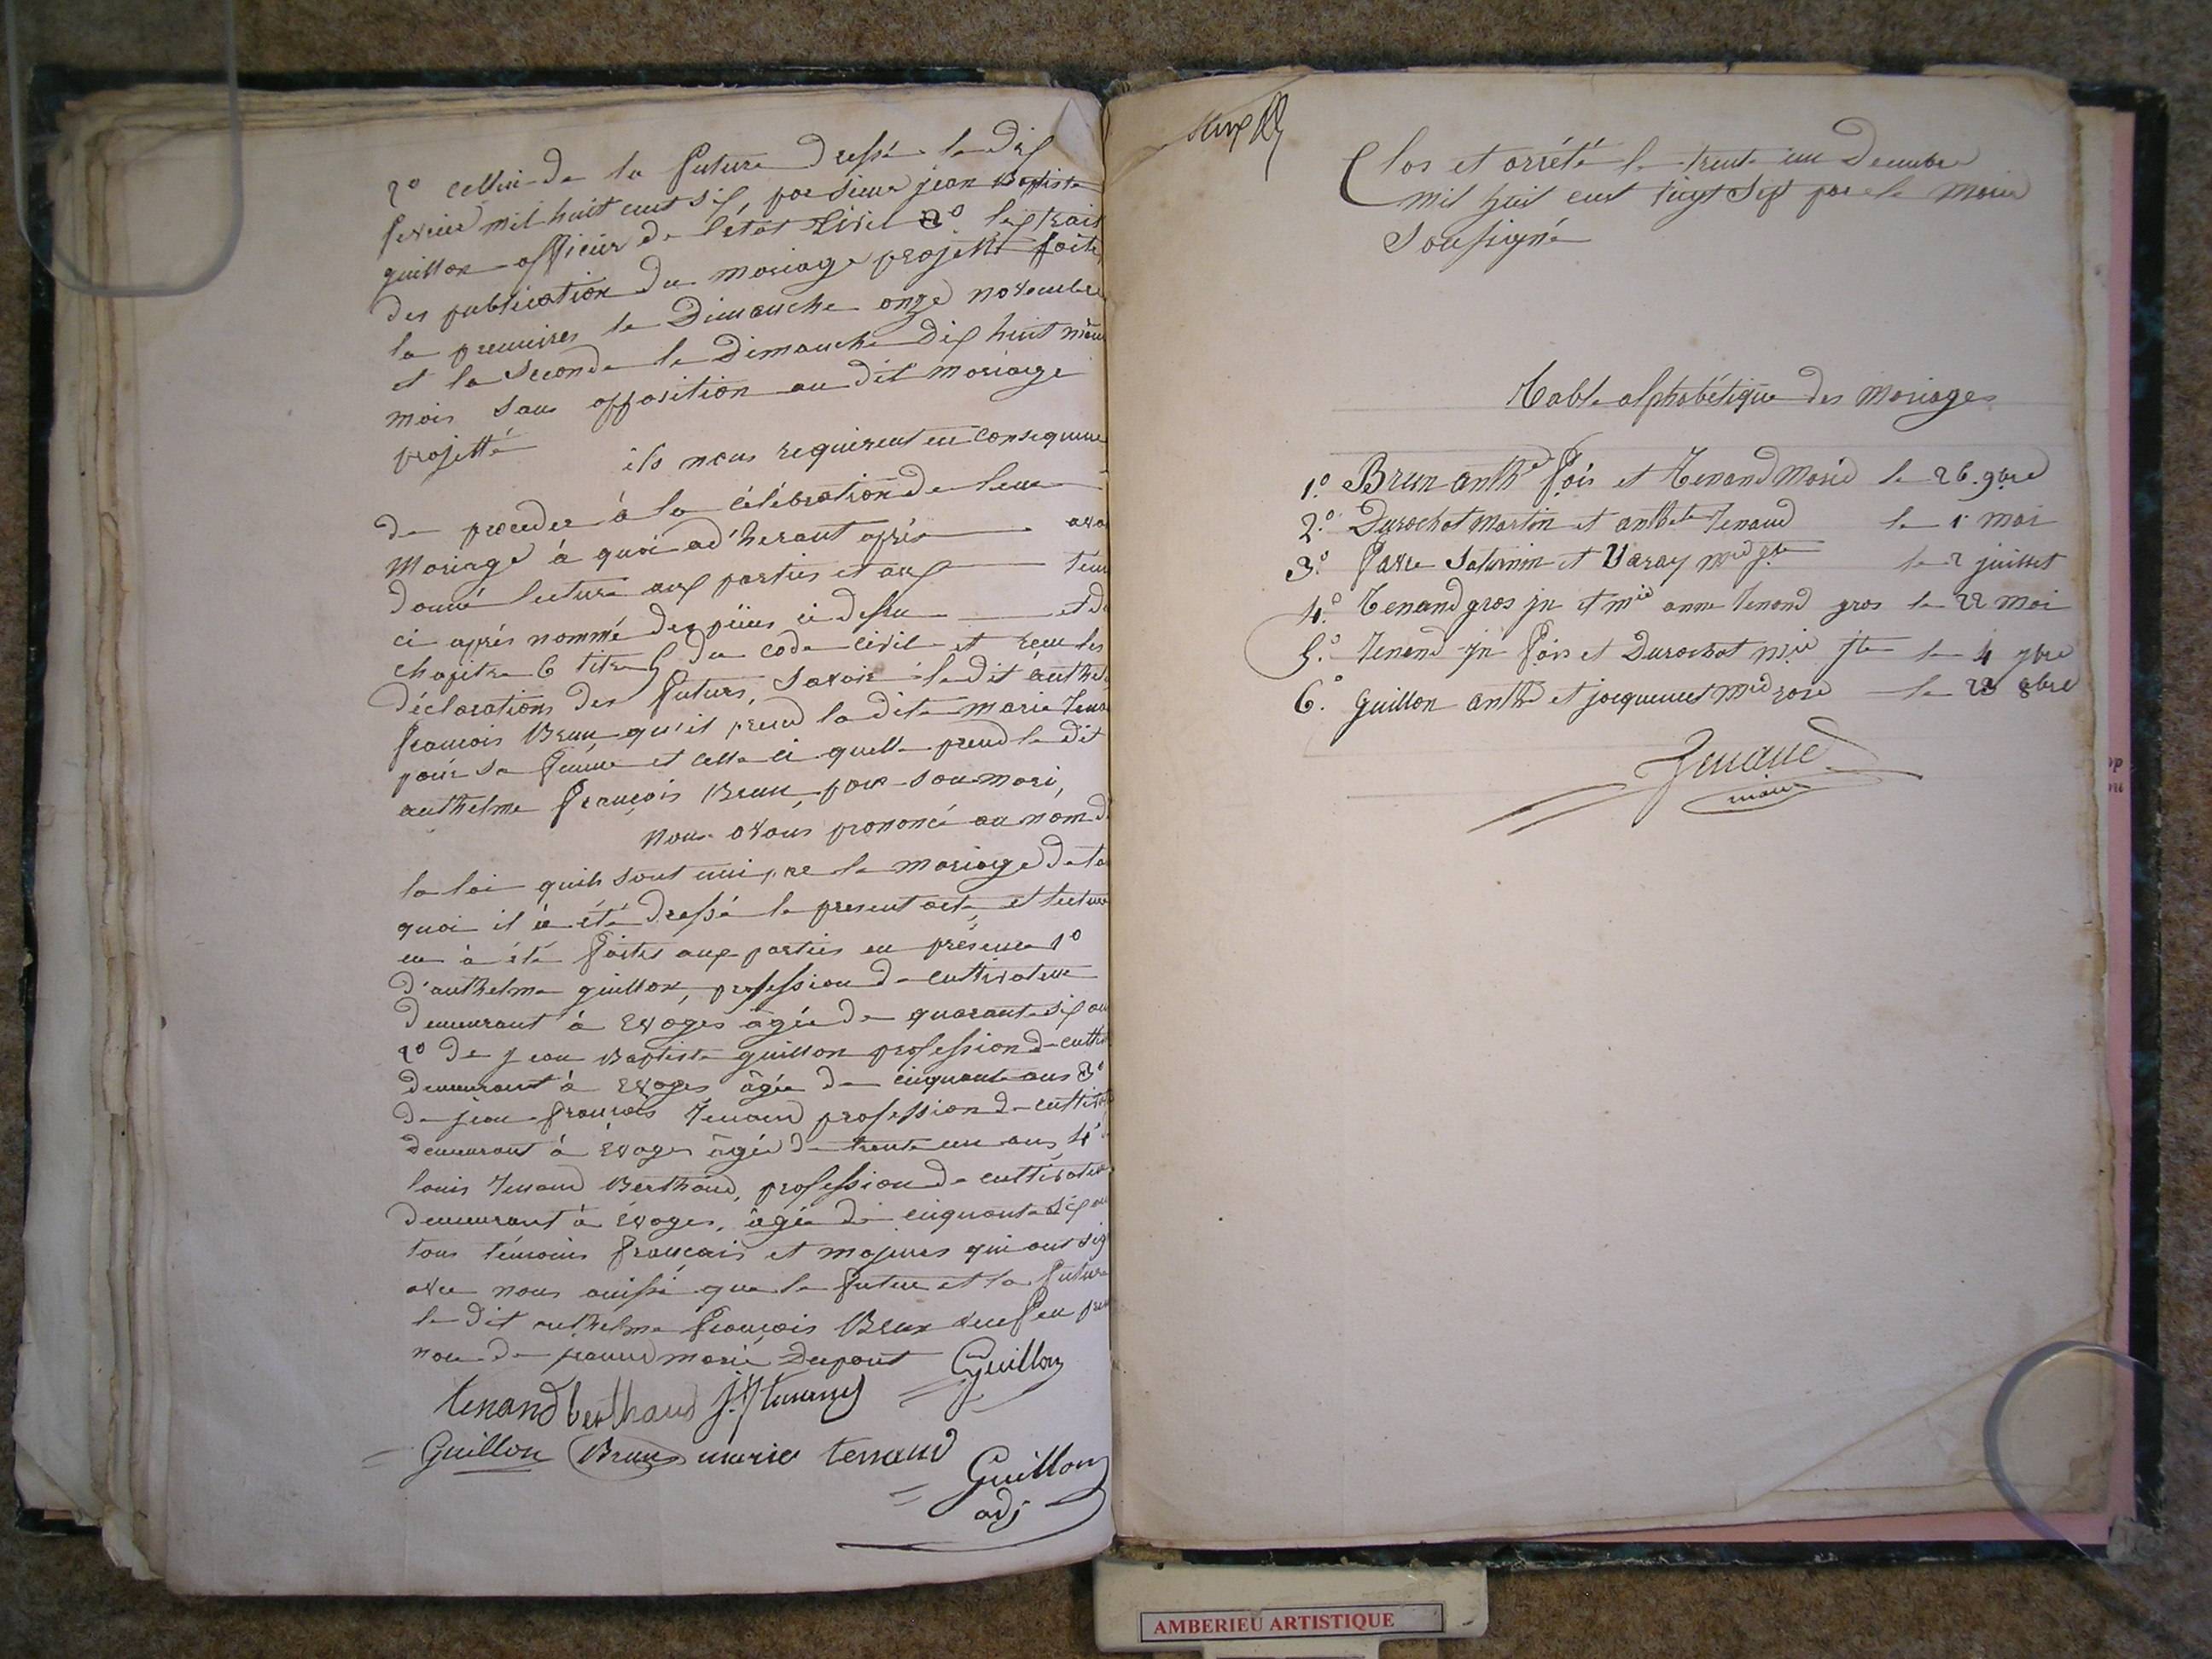 2º cellui de la future dressé le dix
fevrier mil huit cent six, par sieur jean Baptiste
guillon officier de l'état civil 3º. l'extrait
des publication du mariage projetté faite
la premieres le Dimanche onze novembre
et la seconde le Dimanche dix huit même
mois sans opposition au dit mariage
projetté
ils nous requierent en consequence
de proceder à la célébration de leur
Mariage à quoi ad'herant après avoi
donné lecture aux parties et aux temo
ci après nommé des pièces ci dessu et du
chapitre 6 titre 5 du code civil et recu les
déclarations des futurs, savoir le dit anthel
francois Brun qu'il prend la dite marie Tena
pour sa femme et celle ci quelle prend le dit
anthelme françois Brun pour son mari,
Nous avons prononcé au nom d
la loi quils sont uni par le mariage de to
quoi il a été dressé le present acte, et lecture
en à été faites aux parties en présence 1º
d'anthelme guillon, profession de cultivateur
demeurant à Evoges âgée de quarante six an
2º de jean Baptiste guillon profession de cultiv
demeurant à Evoges âgée de cinquante ans 3º
de jean françois Tenand profession de cultivat
demeurant à Evoges âgée de trente un ans, 4º
louis Tenand Berthaud, profession de cultivateur
demeurant à Evoges, âgée de cinquante six an
tous témoins français et majeurs qui ont sig
avec nous aussi que le futur et la future
le dit anthelme françois Brun veuf en prem
noce de jeanne marie Dupont Guillon
tenand berthaud j. f tenand
Guillon Brun marie tenand
Guillon
adj
Clos et arrété le trente un Decembre
mil huit cent vingt sept par le Maire
soussigné
Table alphabétique des Mariages
1.º Brun anthe. fois et Tenand Marie le 26. 9bre
2.º Durochat Martin et anthete Tenand le 1r mai
3.º favre Saturnin et Varay mie jte le 2 juillet
4.º Tenand gros jn et mie anne Tenand gros le 22 mai
5.º Tenand jn fois et Durochat mie jte le 4 7bre
6.º guillon anthe et jacquemet mie rose le 23 8bre
Tenand
maire
AMBERIEU ARTISTIQUE